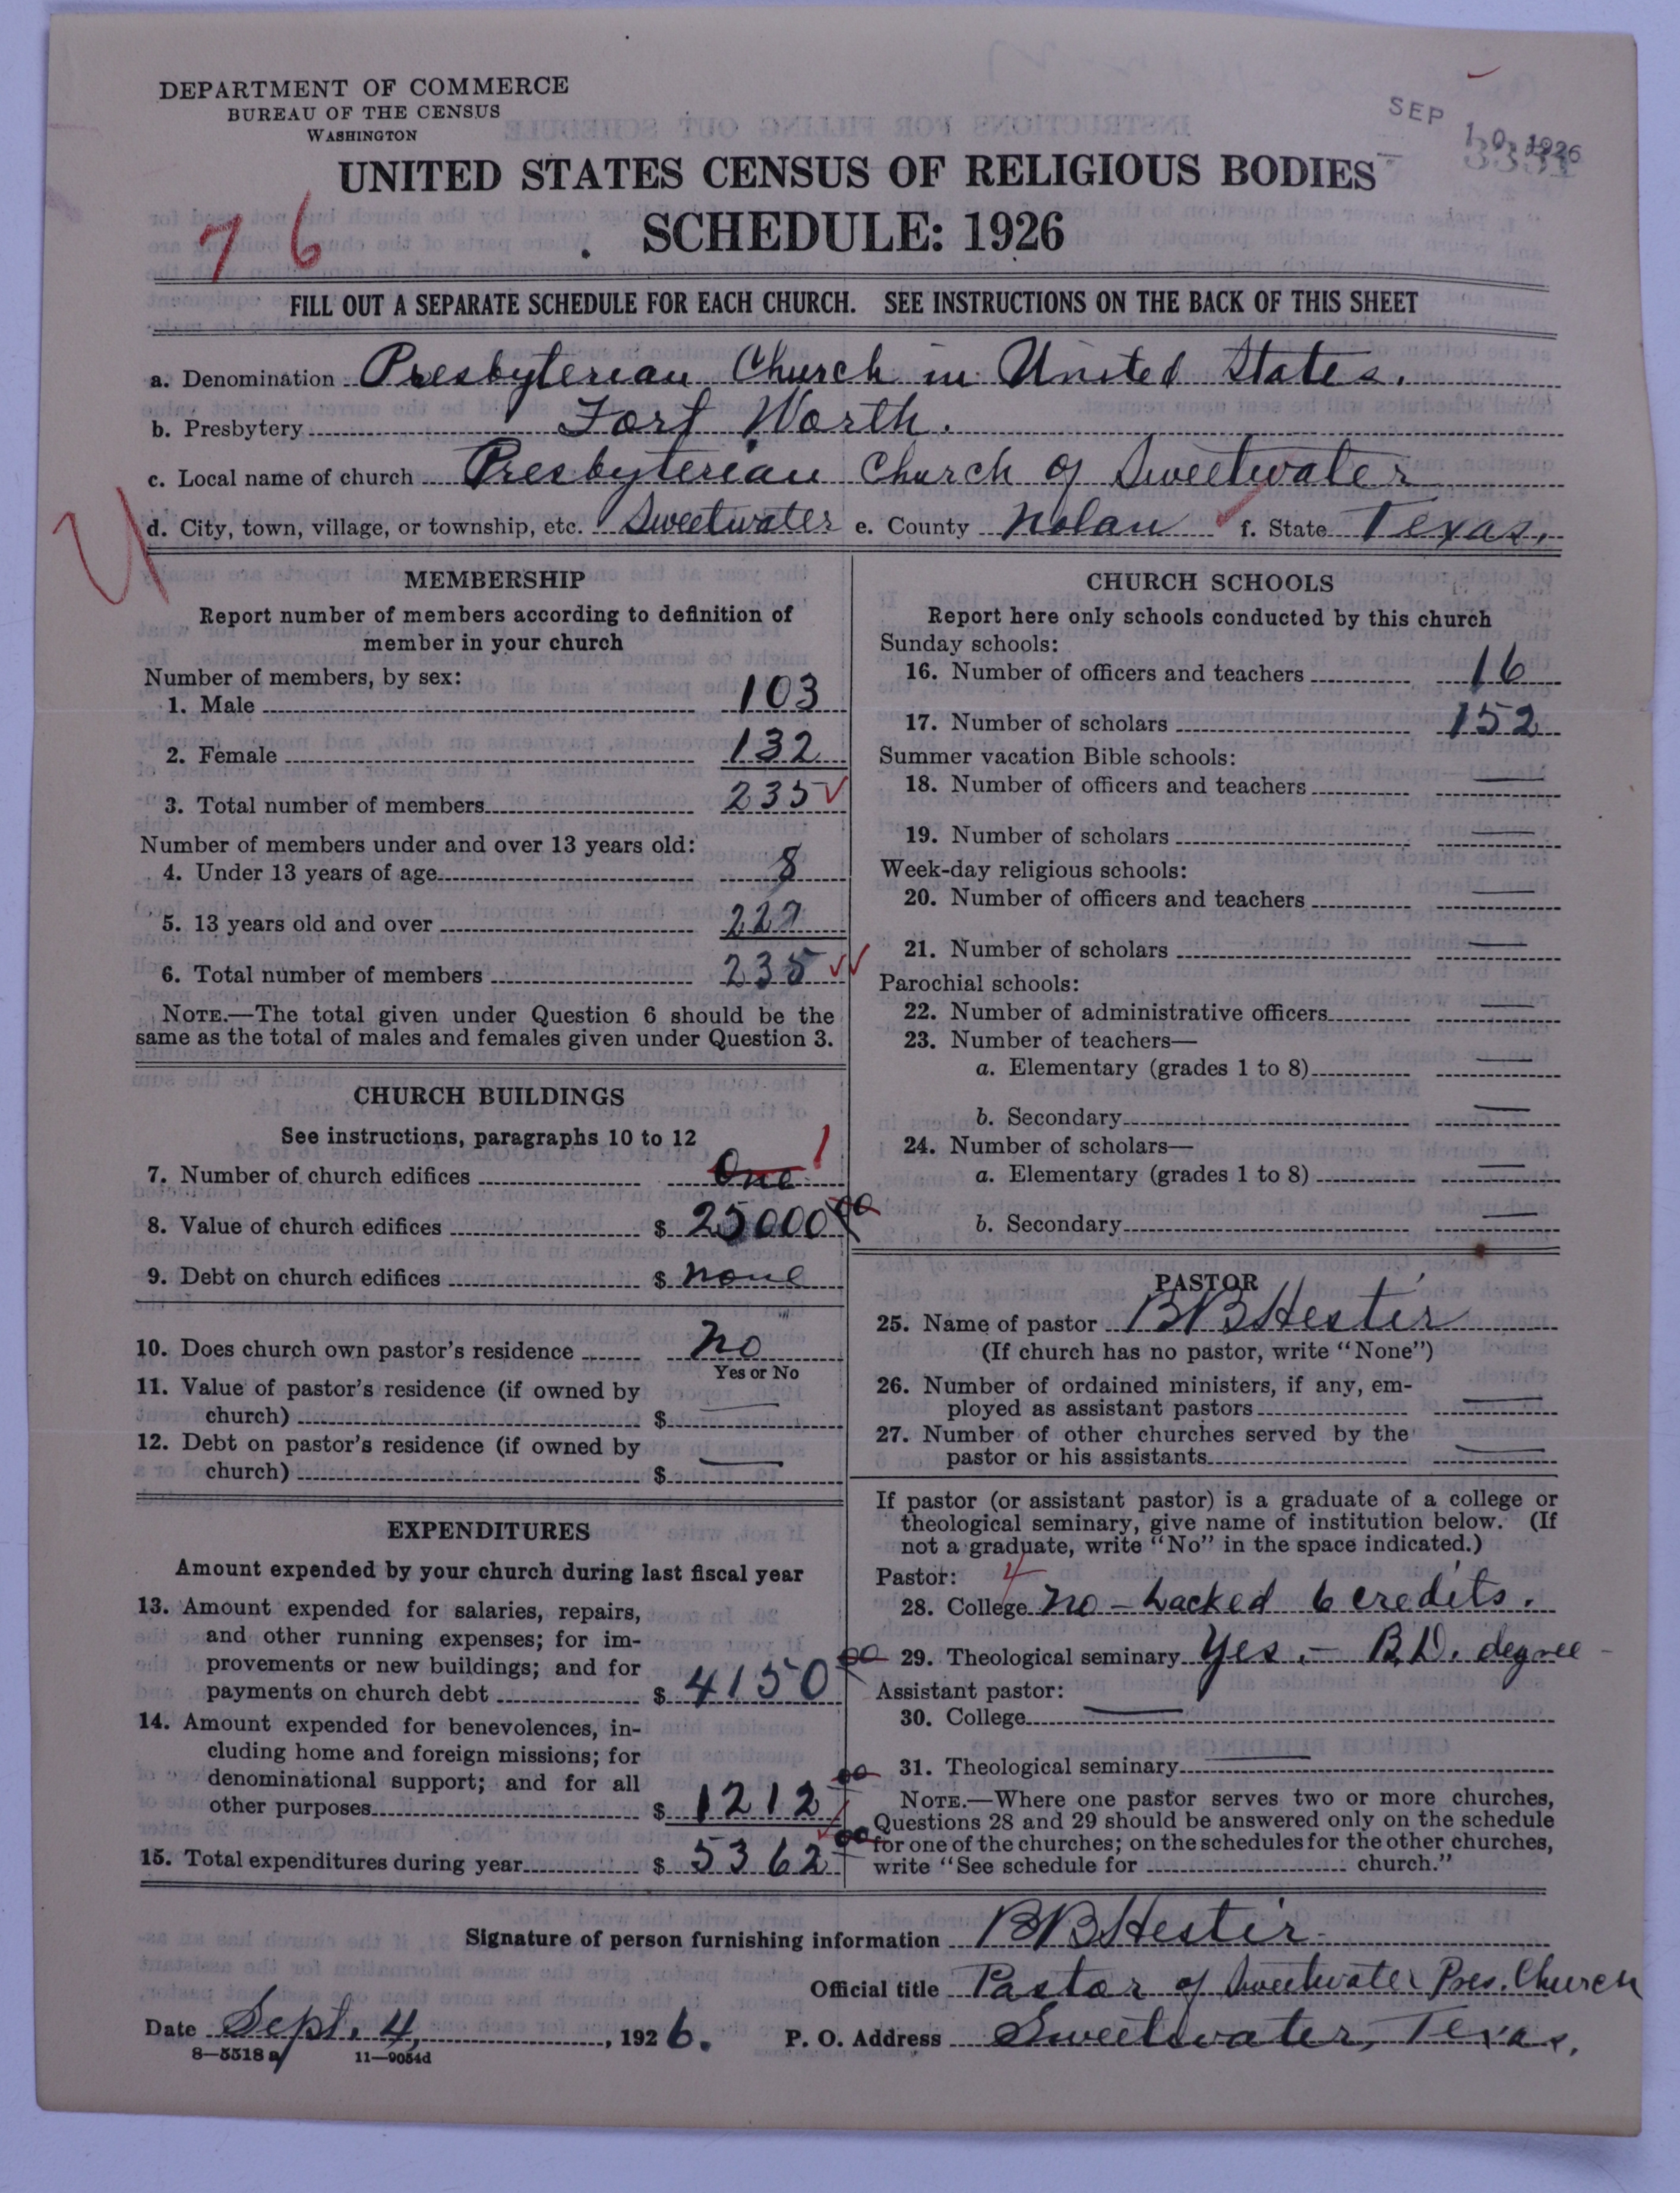 DEPARTMENT OF COMMERCE
BUREAU OF THE CENSUS
WASHINGTON
SEP 10 1926
UNITED STATES CENSUS OF RELIGIOUS BODIES
SCHEDULE: 1926
76
FILL OUT A SEPARATE SCHEDULE FOR EACH CHURCH. SEE INSTRUCTIONS ON THE BACK OF THIS SHEET
a. Denomination Presbyterian Church in United States.
b. Presbytery Fort Worth.
c. Local name of church Presbyterian Church of Sweetwater
d. City, town, village, or township, etc. Sweetwater e. County Nolan f. State Texas.
MEMBERSHIP
Report number of members according to definition of
member in your church
Number of members, by sex:
1. Male 103
2. Female 132
3. Total number of members 235
Number of members under and over 13 years old:
4. Under 13 years of age 8
5. 13 years old and over 227
6. Total number of members 235
NOTE.—The total given under Question 6 should be the
same as the total of males and females given under Question 3.
CHURCH BUILDINGS
See instructions, paragraphs 10 to 12
7. Number of church edifices One 1
8. Value of church edifices $ 25000 00
9. Debt on church edifices $ none
10. Does church own pastor's residence no
Yes or No
11. Value of pastor's residence (if owned by
church) $ —
12. Debt on pastor's residence (if owned by
church) $ —
EXPENDITURES
Amount expended by your church during last fiscal year
13. Amount expended for salaries, repairs,
and other running expenses; for im-
provements or new buildings; and for
payments on church debt $ 4150 00
14. Amount expended for benevolences, in-
cluding home and foreign missions; for
denominational support; and for all
other purposes $ 1212 00
15. Total expenditures during year $ 5362 00
CHURCH SCHOOLS
Report here only schools conducted by this church
Sunday schools:
16. Number of officers and teachers 16
17. Number of scholars 152
Summer vacation Bible schools:
18. Number of officers and teachers —
19. Number of scholars —
Week-day religious schools:
20. Number of officers and teachers —
21. Number of scholars —
Parochial schools:
22. Number of administrative officers —
23. Number of teachers—
a. Elementary (grades 1 to 8) —
b. Secondary —
24. Number of scholars—
a. Elementary (grades 1 to 8) —
b. Secondary —
PASTOR
25. Name of pastor B B Hestir
(If church has no pastor, write "None")
26. Number of ordained ministers, if any, em-
ployed as assistant pastors —
27. Number of other churches served by the
pastor or his assistants —
If pastor (or assistant pastor) is a graduate of a college or
theological seminary, give name of institution below. (If
not a graduate, write "No" in the space indicated.)
Pastor: 4
28. College no – Lacked 6 credits.
29. Theological seminary Yes. – B.D. degree
Assistant pastor:
30. College —
31. Theological seminary —
NOTE.—Where one pastor serves two or more churches,
Questions 28 and 29 should be answered only on the schedule
for one of the churches; on the schedules for the other churches,
write "See schedule for church."
Signature of person furnishing information B B Hestir
Official title Pastor of Sweetwater Pres. Church
Date Sept. 4, 1926. P. O. Address Sweetwater, Texas.
8—5518 a 11—9054d